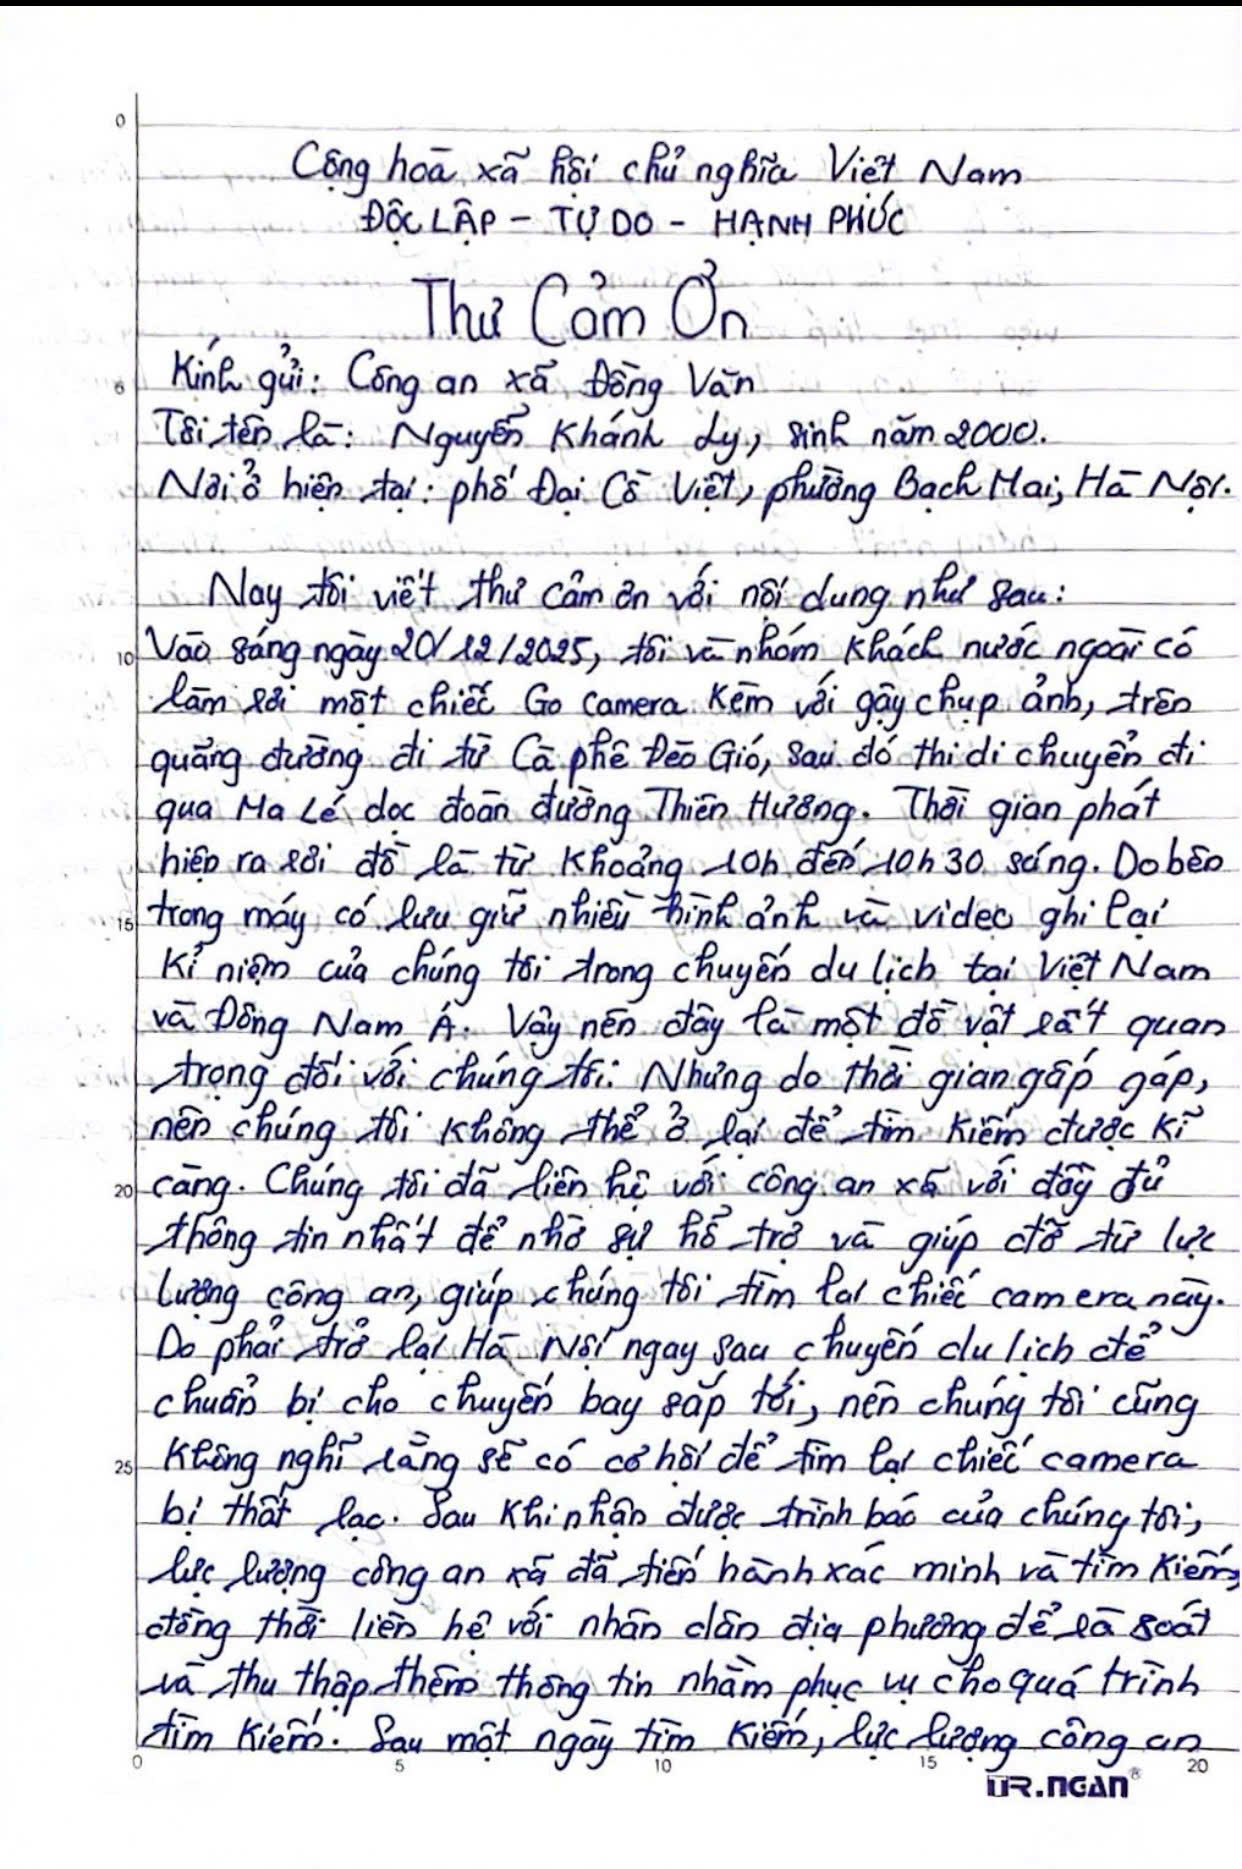 0
Cộng hoà xã hội chủ nghĩa Việt Nam
ĐỘC LẬP - TỰ DO - HẠNH PHÚC
Thư Cảm Ơn
Kính gửi: Công an xã Đồng Văn
Tôi tên là: Nguyễn Khánh Ly, sinh năm 2000.
Nơi ở hiện tại: phố Đại Cồ Việt, phường Bạch Mai, Hà Nội.
Nay tôi viết thư cảm ơn với nội dung như sau:
10 Vào sáng ngày 20/12/2025, tôi và nhóm khách nước ngoài có
làm rơi một chiếc Go Camera kèm với gậy chụp ảnh, trên
quãng đường đi từ Cà phê Đèo Gió, sau đó thì di chuyển đi
qua Ma Lé dọc đoạn đường Thiên Hương. Thời gian phát
hiện ra rơi đồ là từ khoảng 10h đến 10h30 sáng. Do bên
15 trong máy có lưu giữ nhiều hình ảnh và video ghi lại
kỉ niệm của chúng tôi trong chuyến du lịch tại Việt Nam
và Đông Nam Á. Vậy nên đây là một đồ vật rất quan
trọng đối với chúng tôi. Nhưng do thời gian gấp gáp,
nên chúng tôi không thể ở lại để tìm kiếm được kĩ
20 càng. Chúng tôi đã liên hệ với công an xã với đầy đủ
thông tin nhất để nhờ sự hỗ trợ và giúp đỡ từ lực
lượng công an, giúp chúng tôi tìm lại chiếc camera này.
Do phải trở lại Hà Nội ngay sau chuyến du lịch để
chuẩn bị cho chuyến bay sắp tới, nên chúng tôi cũng
25 không nghĩ rằng sẽ có cơ hội để tìm lại chiếc camera
bị thất lạc. Sau khi nhận được trình báo của chúng tôi,
lực lượng công an xã đã tiến hành xác minh và tìm kiếm,
đồng thời liên hệ với nhân dân địa phương để rà soát
và thu thập thêm thông tin nhằm phục vụ cho quá trình
tìm kiếm. Sau một ngày tìm kiếm, lực lượng công an
0 5 10 15 20
TR.NGAN®